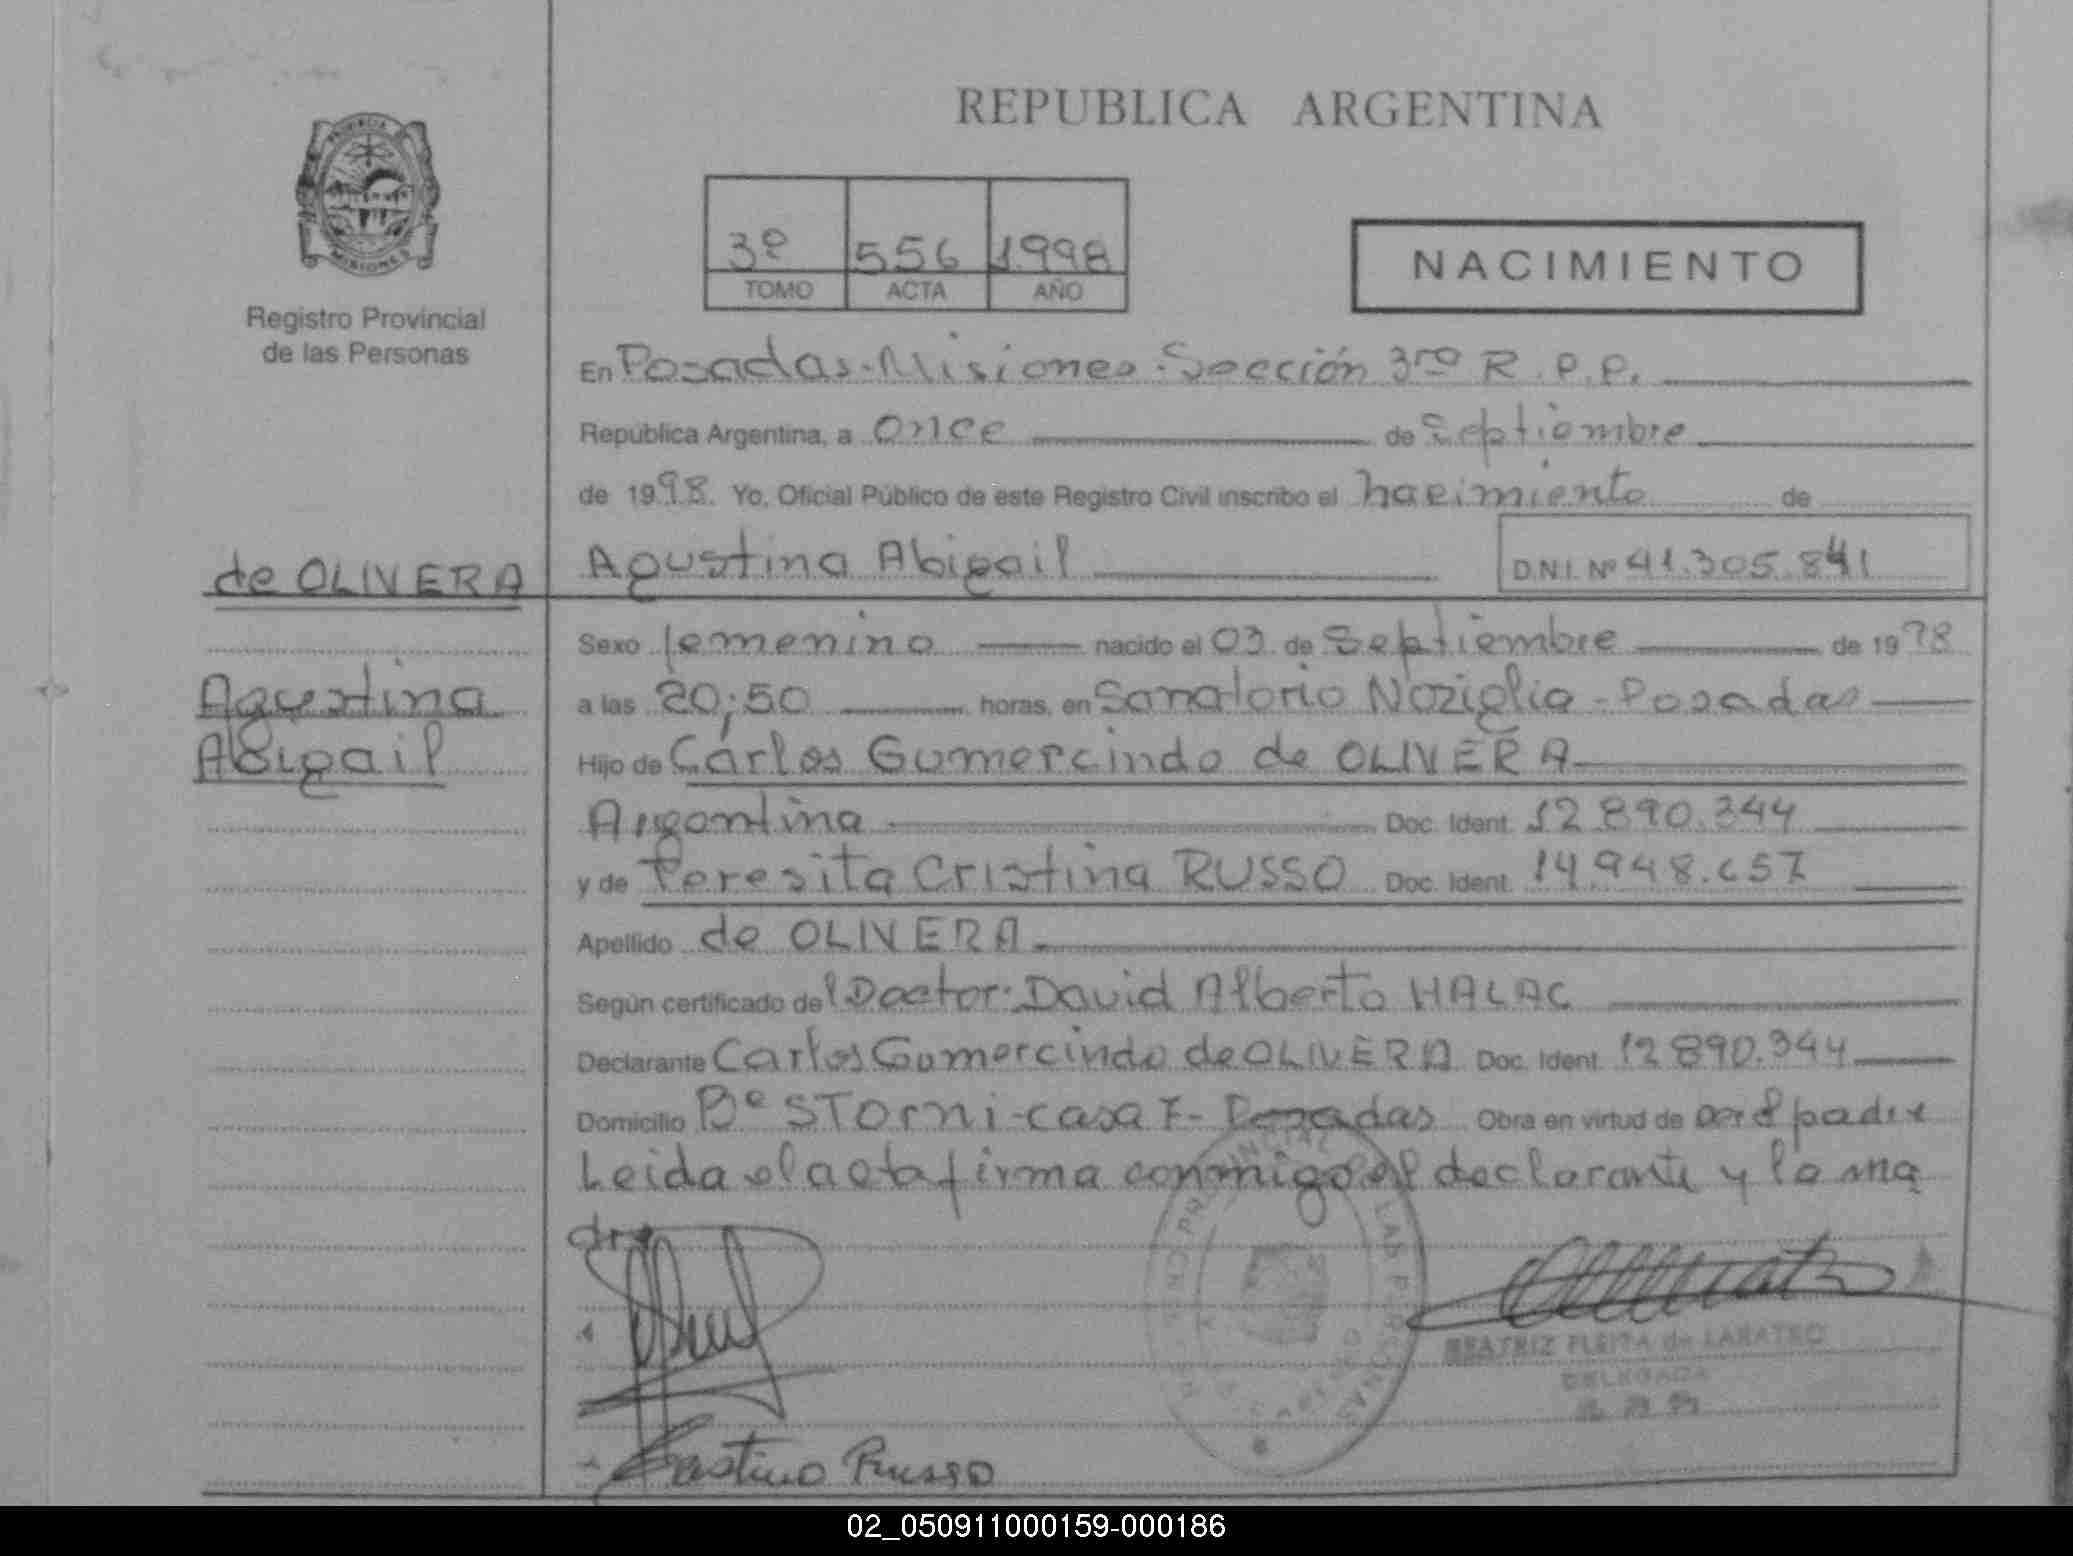 REPUBLICA ARGENTINA
PROVINCIA
MISIONES
Registro Provincial
de las Personas
3º 556 1998
TOMO ACTA AÑO
NACIMIENTO
En Posadas-Misiones-Sección 3ra R.P.P.
República Argentina, a once de Septiembre
de 1998. Yo, Oficial Público de este Registro Civil inscribo el nacimiento de
de OLIVERA
Agustina Abigail D.N.I. Nº 41.305.841
Sexo femenino nacido el 03 de Septiembre de 1998
Agustina
Abigail
a las 20;50 horas, en Sanatorio Noziglia - Posadas
Hijo de Carlos Gumercindo de OLIVERA
Argentina Doc. Ident. 12 890.344
y de Teresita Cristina RUSSO Doc. Ident. 14.948.657
Apellido de OLIVERA
Según certificado del Doctor: David Alberto HALAC
Declarante Carlos Gumercindo de OLIVERA Doc. Ident. 12 890.344
Domicilio Bº STorni-casa 7- Posadas Obra en virtud de ser el padre
Leida el acta firma conmigo el declarante y la ma
dre
BEATRIZ FLEITA de LARATRO
DELEGADA
Russo
02_050911000159-000186